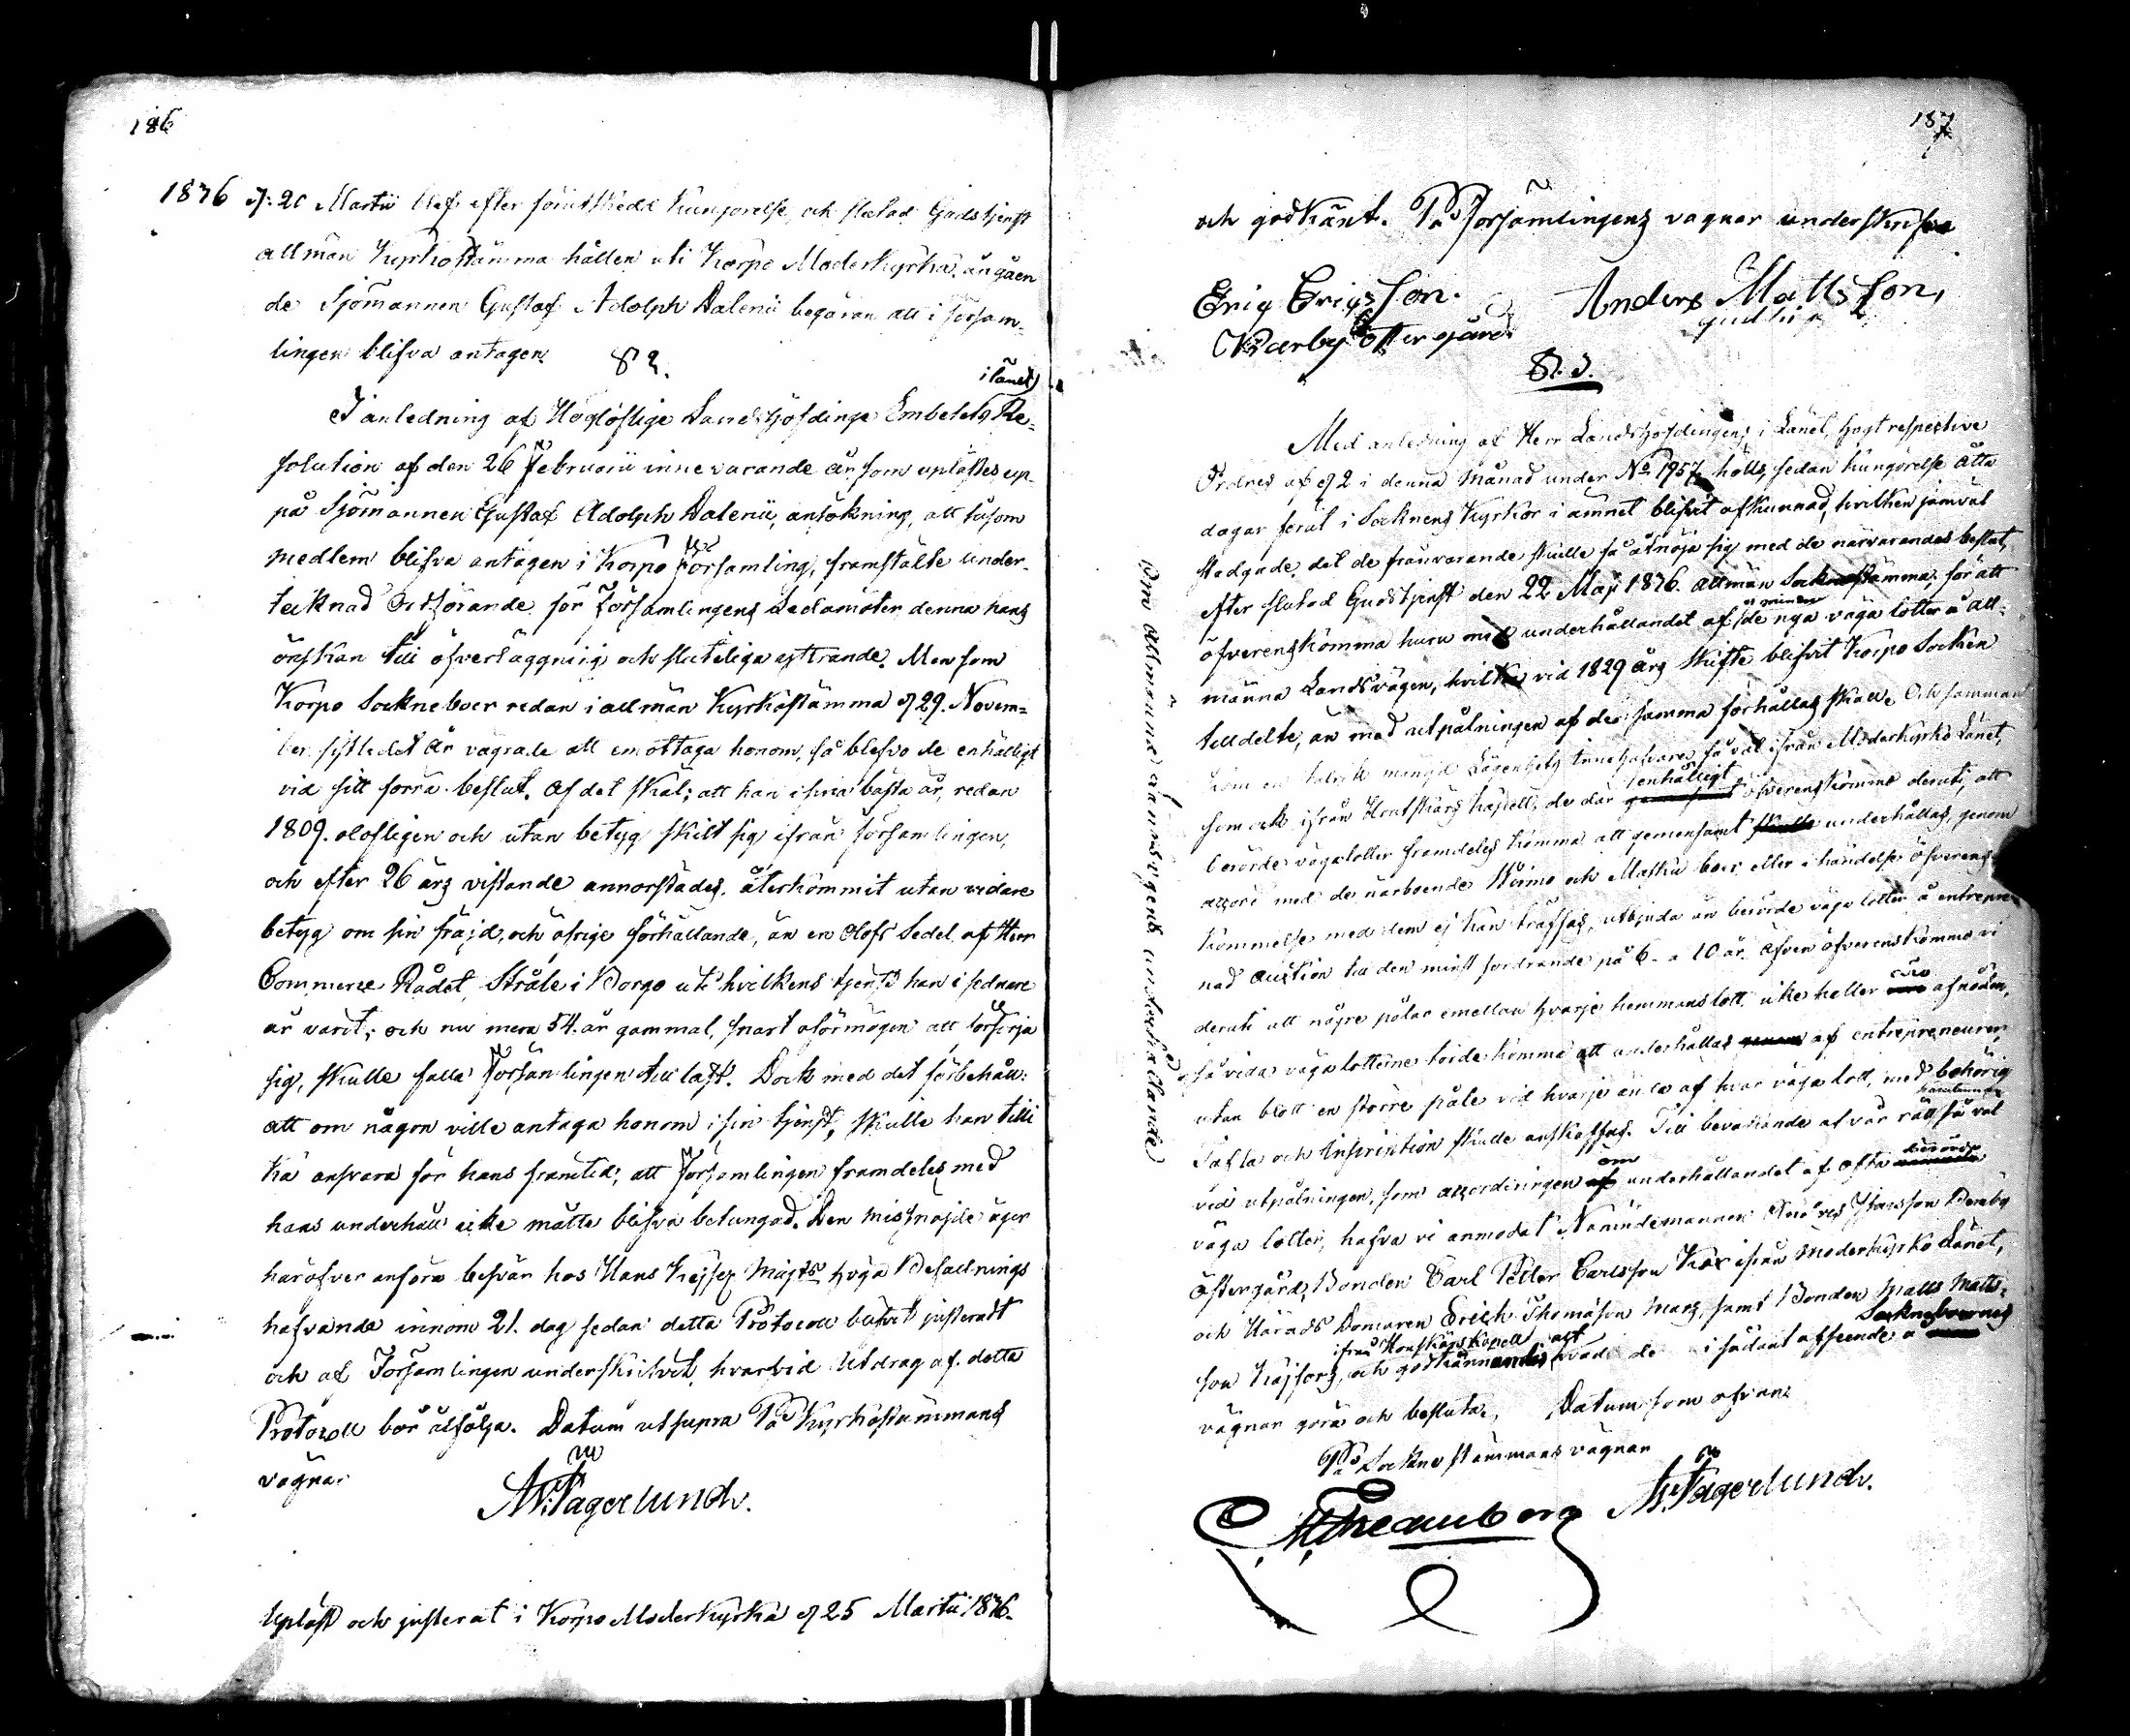 186
1836 d: 20 Martii blef efter förut skedd kungörelse och slutad Gudstjenst
allmän Kyrkostämma hållen uti Korpo Moderkyrka, angåen
de Sjömannen Gustaf Adolph Dalenii begäran att i försam-
lingen blifva antagen.
§ 2.
i länet
I anledning af Höglöflige Landshöfdinge Embetets Re-
solution af den 26 Februarii innevarande år, som uplästes up-
på Sjömannen Gustaf Adolph Dalenii, ansökning, att såsom
medlem blifva antagen i Korpo Församling, framstälte under-
tecknad Ordförande för Församlingens Ledamöter denna hans
önskan till öfverläggning och sluteliga yttrande. Men som
Korpo Sockneboer redan i allmän Kyrkostämma d 29. Novem-
ber sistledet år vägrade att emottaga honom, så blefvo de enhälligt
vid sitt förra beslut. Af det skäl; att han i sina bästa år, redan
1809. olofligen och utan betyg skilt sig ifrån församlingen,
och efter 26 års vistande annorstädes, återkommit utan vidare
betyg om sin fräjd, och öfrige förhållande, än en Olofs Sedel af Herr
Commerce Rådet Stråle i Borgo uti hvilkens tjenst han i sednare
år varit; och nu mera 54. år gammal, snart oförmögen att försörja
sig, skulle falla Församlingen till last. Dock med det förbehåll:
att om någon ville antaga honom i sin tjenst, skulle han till
ka ansvara för hans framtid; att Församlingen framdeles med
hans underhåll icke måtte blifva betungad. Den misnöjde äger
häröfver anföra besvär hos Hans Kejserl Majts höga Befallnings
hafvande innom 21. dag sedan detta Protocoll blifvit justeradt
och af Församlingen underskrifvit, hvarvid Utdrag af detta
Protocoll bör åtfölja. Datum utsupra På Kyrkostämmans
vägnar
A. Fagerlund.
Upläst och justerat i Korpo Moderkyrka d 25 Martii 1836.
187
och godkänt. På Församlingens vägnar underskrifva
Eric Ericsson. Anders Mattsson,
östergård
§. 3.
Om allmänna Landsvägens underhållande
Med anledning af Herr Landshöfdingens i Länet, högt respective
Ordres af d 2 i denna månad under No 1957, hölls, sedan kungörelse åtta
dagar förut i Socknens Kyrkor i ämnet blifvit afkunnad, hvilken jämväl
stadgade, det de frånvarande skulle få åtnöja sig med de närvarandes beslut,
efter slutad Gudstjenst den 22 Maji 1836. allmän Sockenstämma, för att
öfverenskomma huru med underhållandet af de nya väga lotter å all-
männa Landsvägen, hvilka vid 1829 års skifte blifvit Korpo Socken
tilldelte, än med utpålningen af desamma förhållas skall. Och samman
kom en talrik mängd Lägenhets Innehafvare så väl ifrån Moderkyrko Länet,
enhälligt
som ock ifrån Houtskärs Kapell, de där öfverenskommo deruti, att
berörde vägalotter framdeles komma att gemensamt underhållas, genom
accord med de närboende Wirmo och Masku boer, eller i händelse öfverens-
kommelse med dem ej kan träffas, utbjuda än berörde väga lotter å entrepre
nad Auction till den minst fordrande på 6 a 10 år. Äfven öfverenskommo vi
deruti att några pålar emellan hvarje hemmanslott, icke heller af nöden,
så vida vägalotterne torde komma att underhållas af entrepreneuren,
utan blott en större påle vid hvarje ända af hvar väga lott, med behörig
Tafla och Inscription skulle anskaffas. Till bevakande af vår rätt så väl
om
vid utpålningen, som accorderingen underhållandet af ofta
väga lotter, hafva vi anmodat Nämndemannen Andres
Östergård, Bonden Carl Petter Carlsson Käx ifrån Moderkyrko Länet,
och Härads Domaren Erich Thomasson, samt Bonden Matts Matts-
ifrån Houtskärs Kapell Sockneboernes
son, och godkännandes, allt hvad de i sådant afseende å
vägnar göra och besluta. Datum som ofvan:
På Sockne stämmans vägnar
A. Fagerlund.